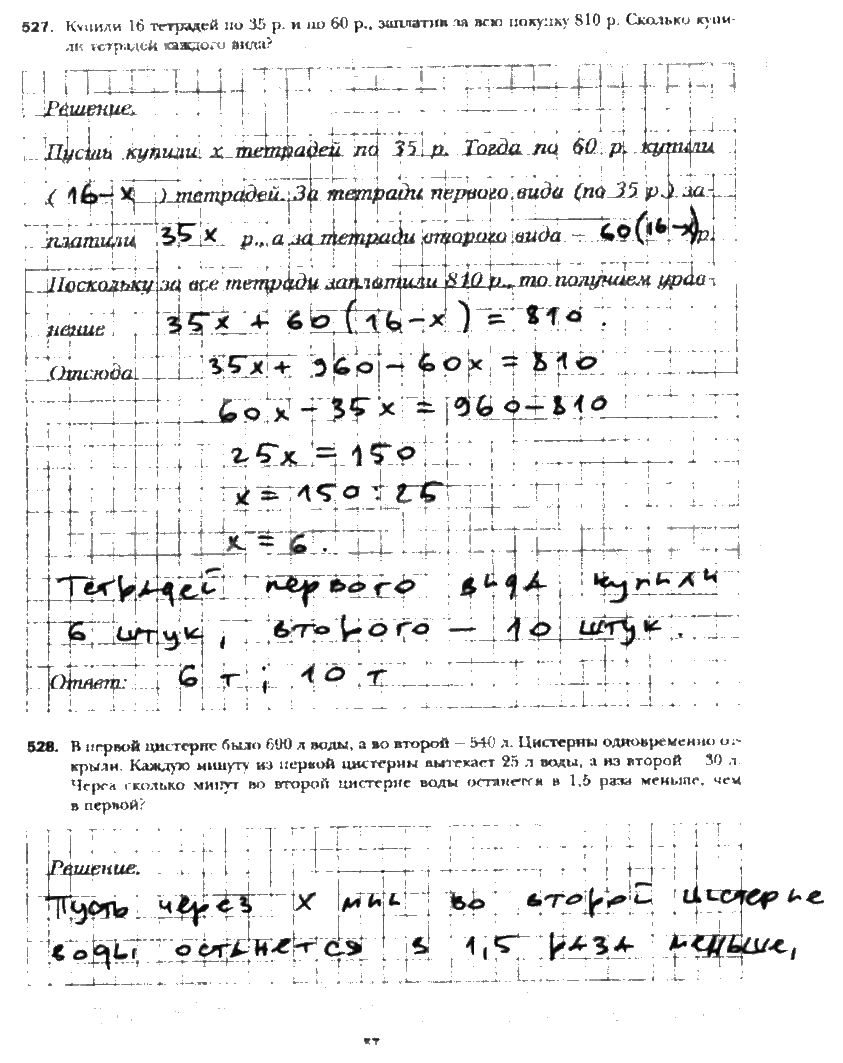 527. Купили 16 тетрадей по 35 р. и по 60 р., заплатив за всю покупку 810 р. Сколько купи-
ли тетрадей каждого вида?
Решение.
Пусть купили x тетрадей по 35 р. Тогда по 60 р. купили
( 16-x ) тетрадей. За тетради первого вида (по 35 р.) за-
платили 35x р., а за тетради второго вида – 60(16-x)р.
Поскольку за все тетради заплатили 810 р., то получаем урав-
нение 35x + 60 (16-x) = 810.
Отсюда 35x + 960 - 60x = 810
60x - 35x = 960-810
25x = 150
x = 150 : 25
x = 6.
Тетрадей первого вида купили
6 штук, второго - 10 штук.
Ответ: 6 т ; 10 т
528. В первой цистерне было 600 л воды, а во второй – 540 л. Цистерны одновременно от-
крыли. Каждую минуту из первой цистерны вытекает 25 л воды, а из второй 30 л.
Через сколько минут во второй цистерне воды останется в 1,5 раза меньше, чем
в первой?
Решение.
Пусть через x мин во второй цистерне
воды останется в 1,5 раза меньше,
57